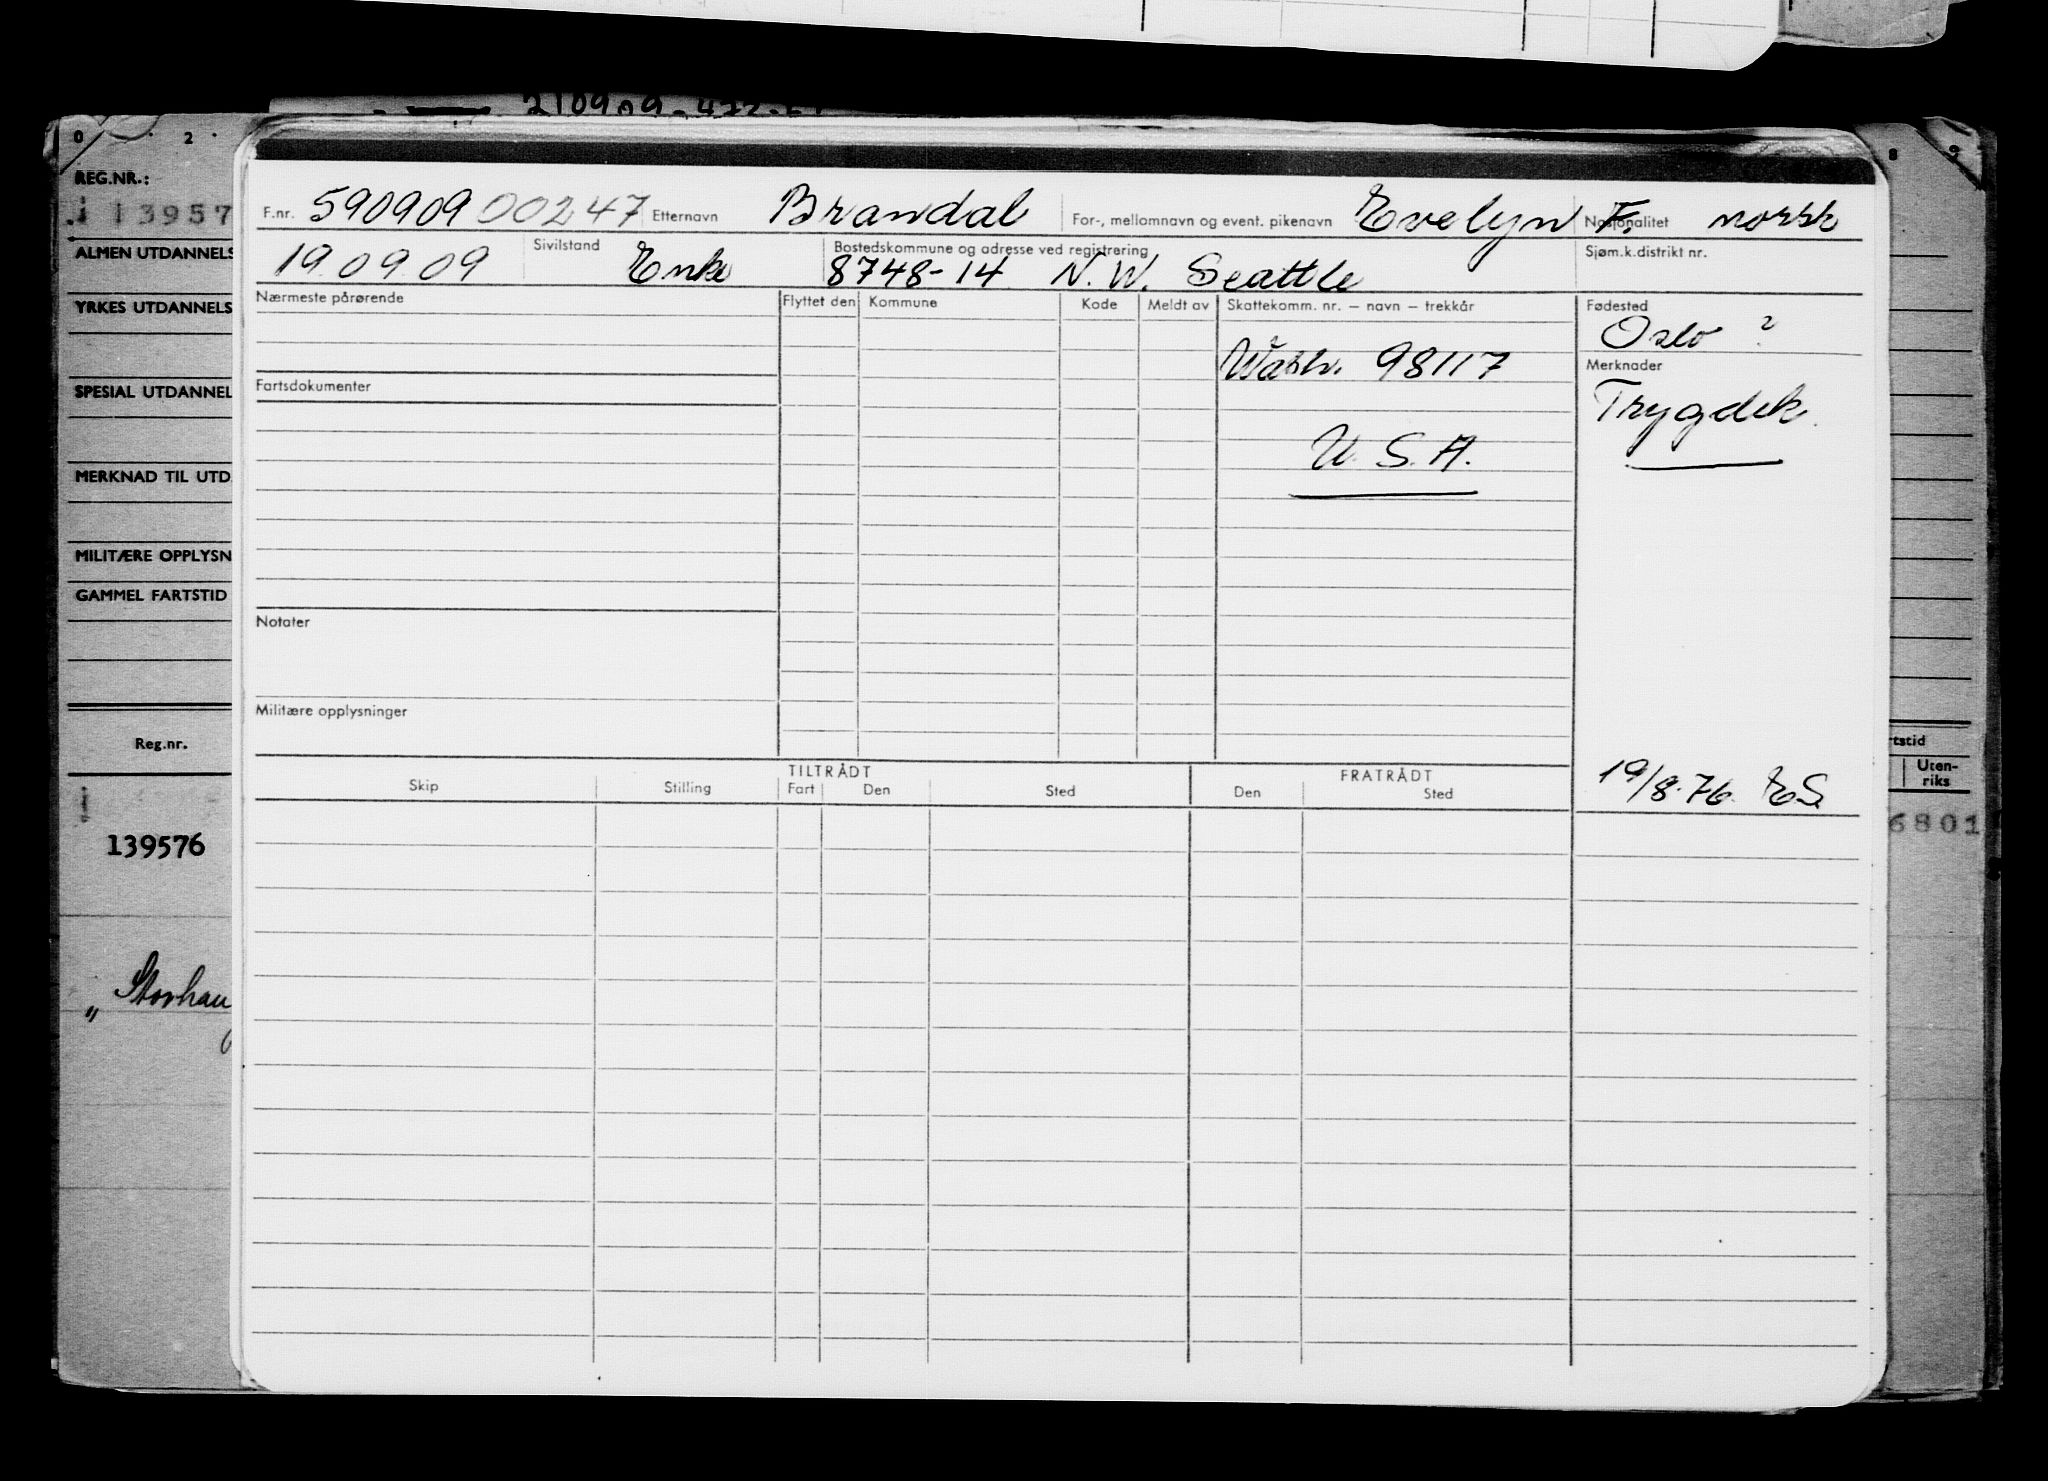 210909-472-
0 . 2 .
8 9
REG.NR.:
13957
ALMEN UTDANNELS
YRKES UTDANNELS
SPESIAL UTDANNEL
MERKNAD TIL UTD
MILITÆRE OPPLYSN
GAMMEL FARTSTID
Reg.nr.
139576
" Storhau
F.nr. 590909 00247 Etternavn Brandal For-, mellomnavn og event. pikenavn Evelyn F. Nasjonalitet norsk
19.09.09 Sivilstand Enke Bostedskommune og adresse ved registrering 8748-14 N.W. Seattle Sjøm.k.distrikt nr.
Nærmeste pårørende Flyttet den Kommune Kode Meldt av Skattekomm. nr. – navn – trekkår Fødested
Oslo ?
Wash. 98117 Merknader
Fartsdokumenter Trygdek.
U.S.A.
Notater
Militære opplysninger
TILTRÅDT FRATRÅDT
Skip Stilling Fart Den Sted Den Sted
19/8-76. ES.
rtstid
Uten-
riks
6801